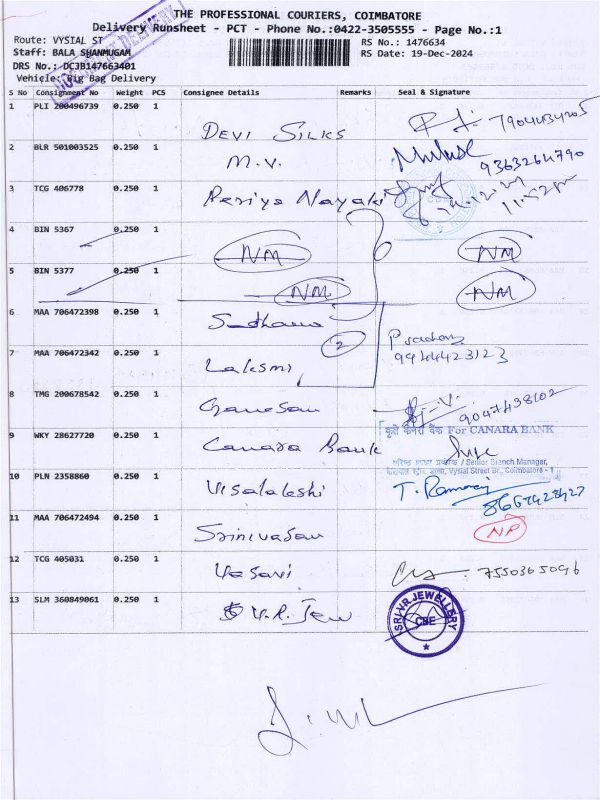 THE PROFESSIONAL COURIERS, COIMBATORE
Delivery Runsheet - PCT - Phone No.:0422-3505555 - Page No.:1
Route: VYSIAL ST
RS No.: 1476634
Staff: BALA SHANMUGAM
RS Date: 19-Dec-2024
DRS No.: DCJB147663401
Vehicle: Big Bag Delivery
S No Consignment No Weight PCS Consignee Details Remarks Seal & Signature
1 PLI 200496739 0.250 1 DEVI SILKS
2 BLR 501003525 0.250 1 M.V. 9363264790
3 TCG 406778 0.250 1 Periya Nayaki
4 BIN 5367 0.250 1 NM NM
5 BIN 5377 0.250 1 NM NM
6 MAA 706472398 0.250 1 Sadhana
2
7 MAA 706472342 0.250 1 Laksmi
8 TMG 200678542 0.250 1 Ganesan 9047498102
कृते केनरा बैंक For CANARA BANK
9 WKY 28627720 0.250 1 Canara Bank
/ Senior Branch Manager,
Vysial Street Br., Coimbatore - 1
10 PLN 2358860 0.250 1 Visalakshi T. Ramaraj
11 MAA 706472494 0.250 1 Srinivasan NP
12 TCG 405031 0.250 1 Vasavi 7550365096
13 SLM 360849061 0.250 1 V.R. Jew
SRI VR JEWELLERY
CBE